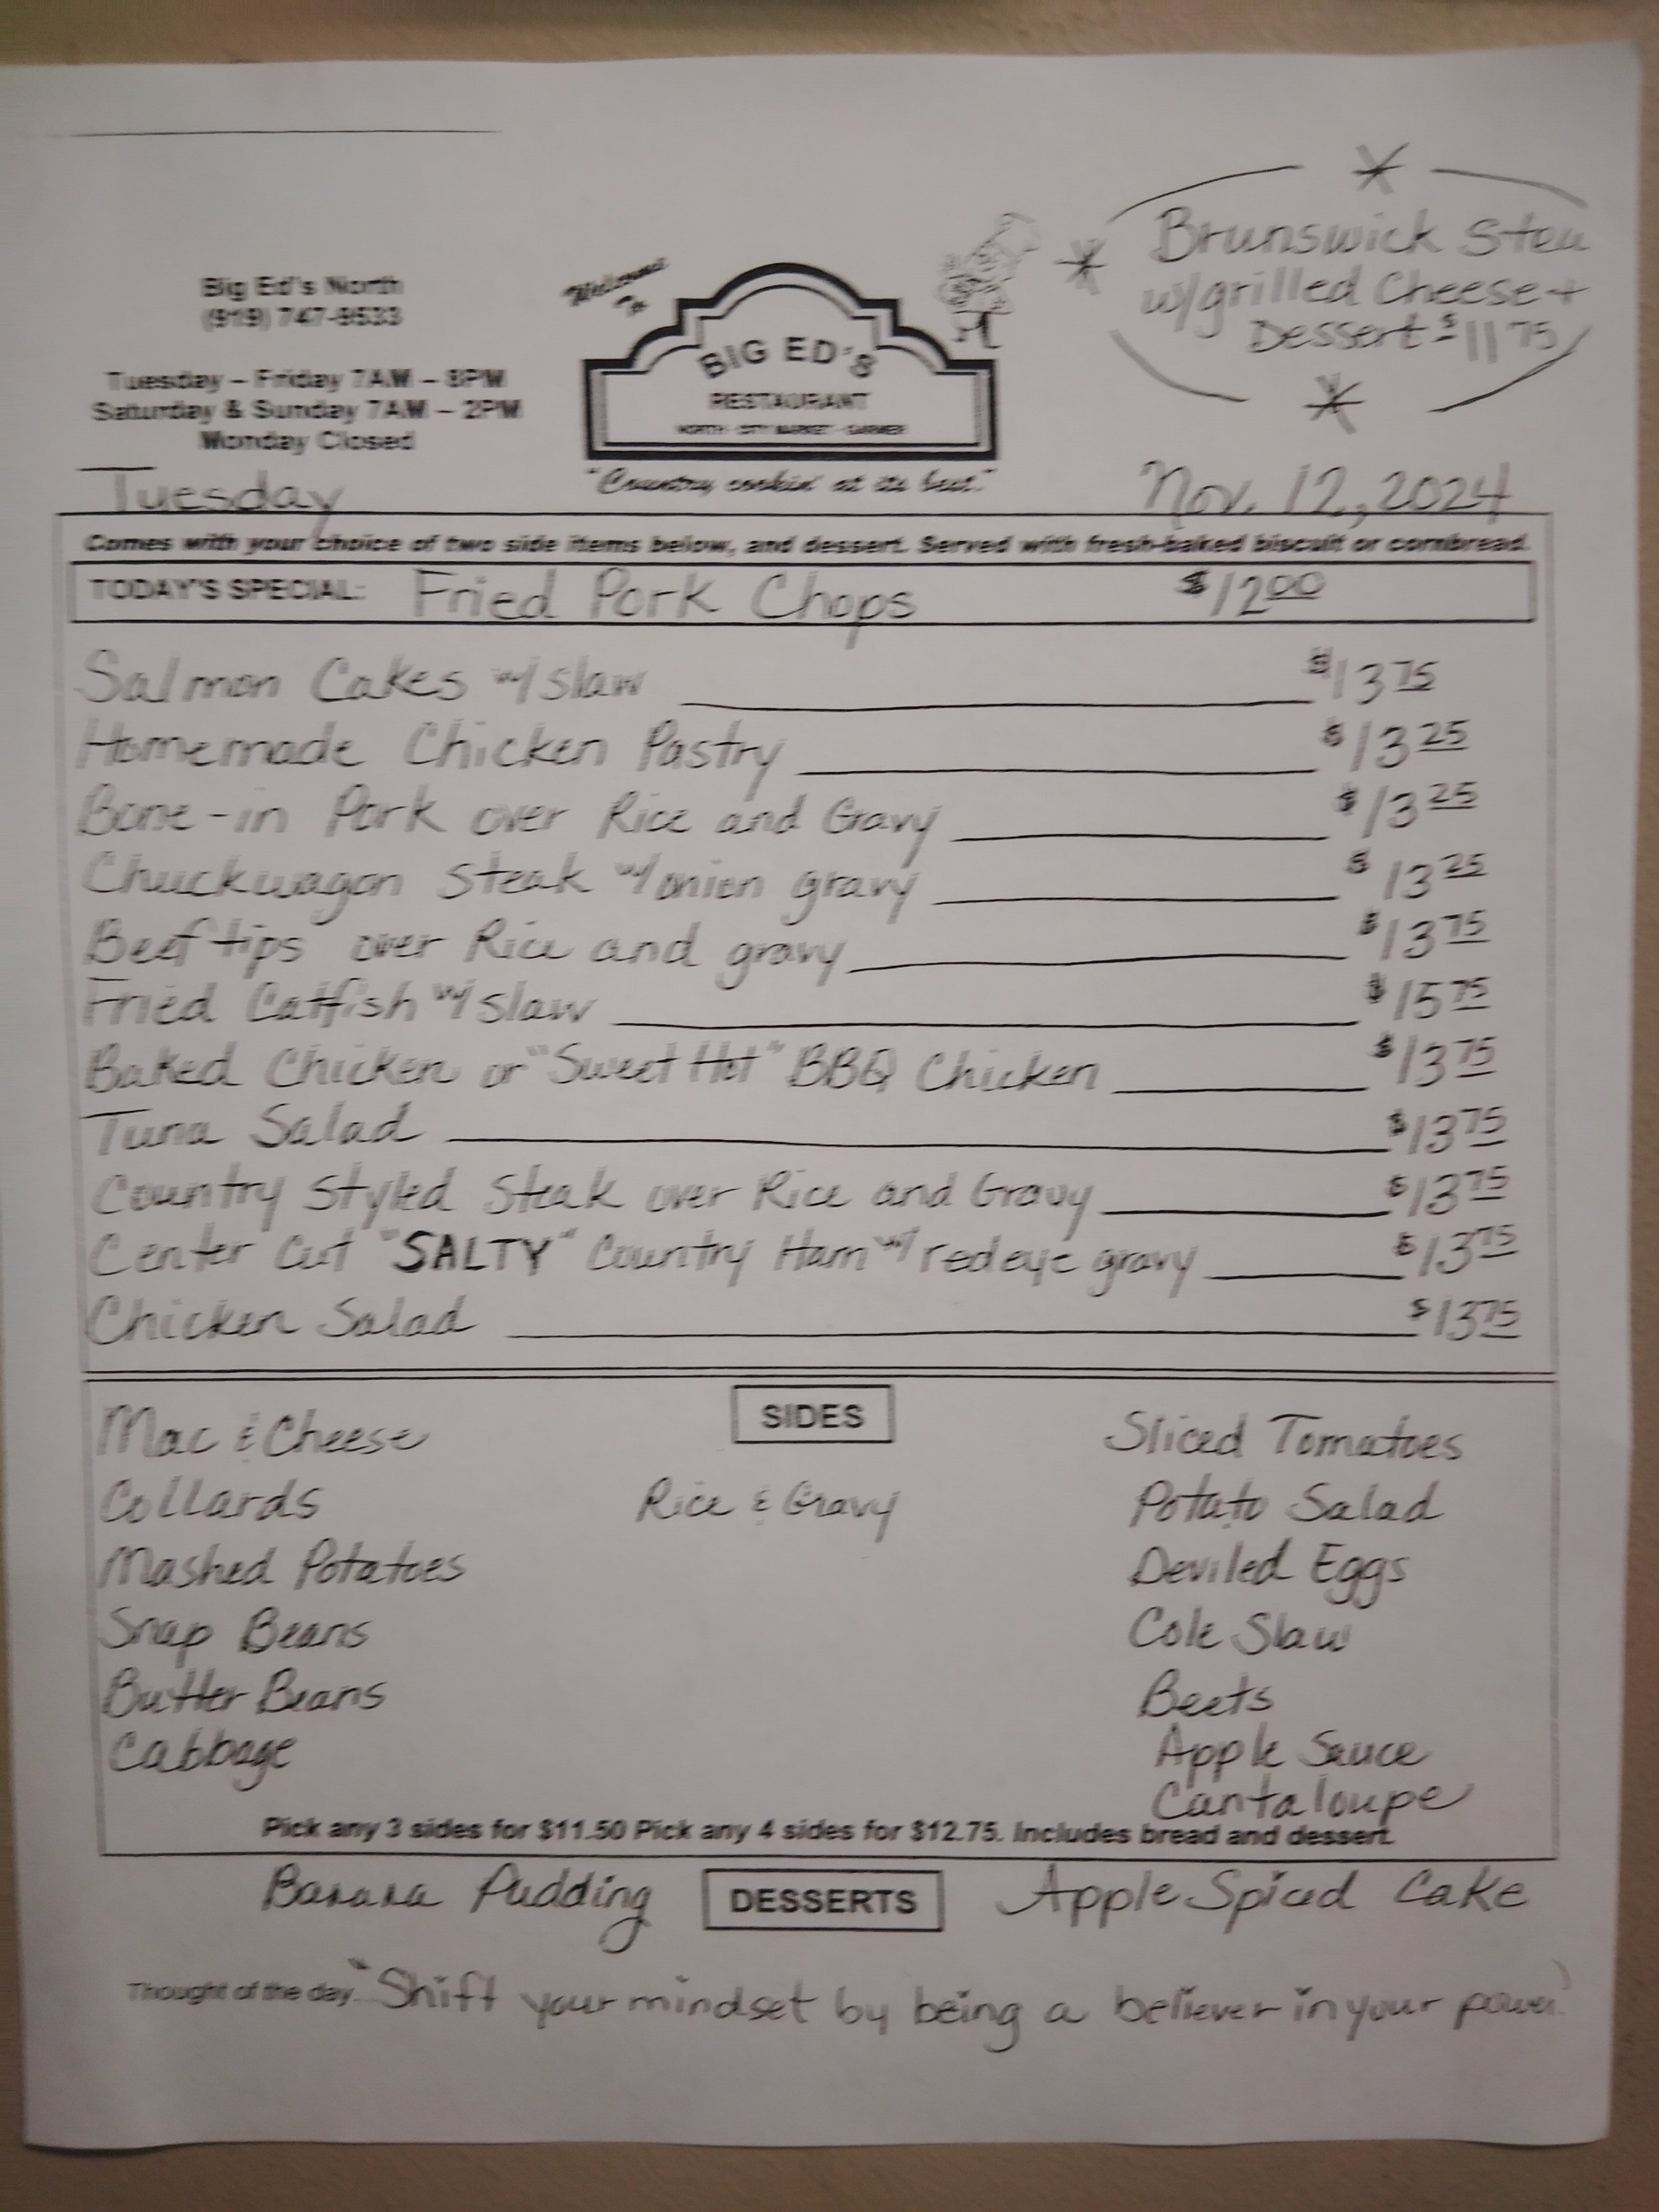 Brunswick Stew
w/grilled Cheese +
Dessert $11 75
Big Ed's North
(919) 747-9533
Tuesday – Friday 7AM – 8PM
Saturday & Sunday 7AM – 2PM
Monday Closed
Welcome
To
BIG ED'S
RESTAURANT
NORTH · CITY MARKET · GARNER
"Country cookin' at its best."
Tuesday
Nov. 12, 2024
Comes with your choice of two side items below, and dessert. Served with fresh-baked biscuit or cornbread.
TODAY'S SPECIAL: Fried Pork Chops $12 00
Salmon Cakes w/ slaw $13 75
Homemade Chicken Pastry $13 25
Bone-in Pork over Rice and Gravy $13 25
Chuckwagon Steak w/ onion gravy $13 25
Beef tips over Rice and gravy $13 75
Fried Catfish w/ slaw $15 75
Baked Chicken or "Sweet Hot" BBQ Chicken $13 75
Tuna Salad $13 75
Country Styled Steak over Rice and Gravy $13 75
Center Cut "SALTY" Country Ham w/ redeye gravy $13 75
Chicken Salad $13 75
SIDES
Mac & Cheese
Collards
Mashed Potatoes
Snap Beans
Butter Beans
Cabbage
Rice & Gravy
Sliced Tomatoes
Potato Salad
Deviled Eggs
Cole Slaw
Beets
Apple Sauce
Cantaloupe
Pick any 3 sides for $11.50 Pick any 4 sides for $12.75. Includes bread and dessert.
Banana Pudding DESSERTS Apple Spiced Cake
Thought of the day: "Shift your mindset by being a believer in your power."